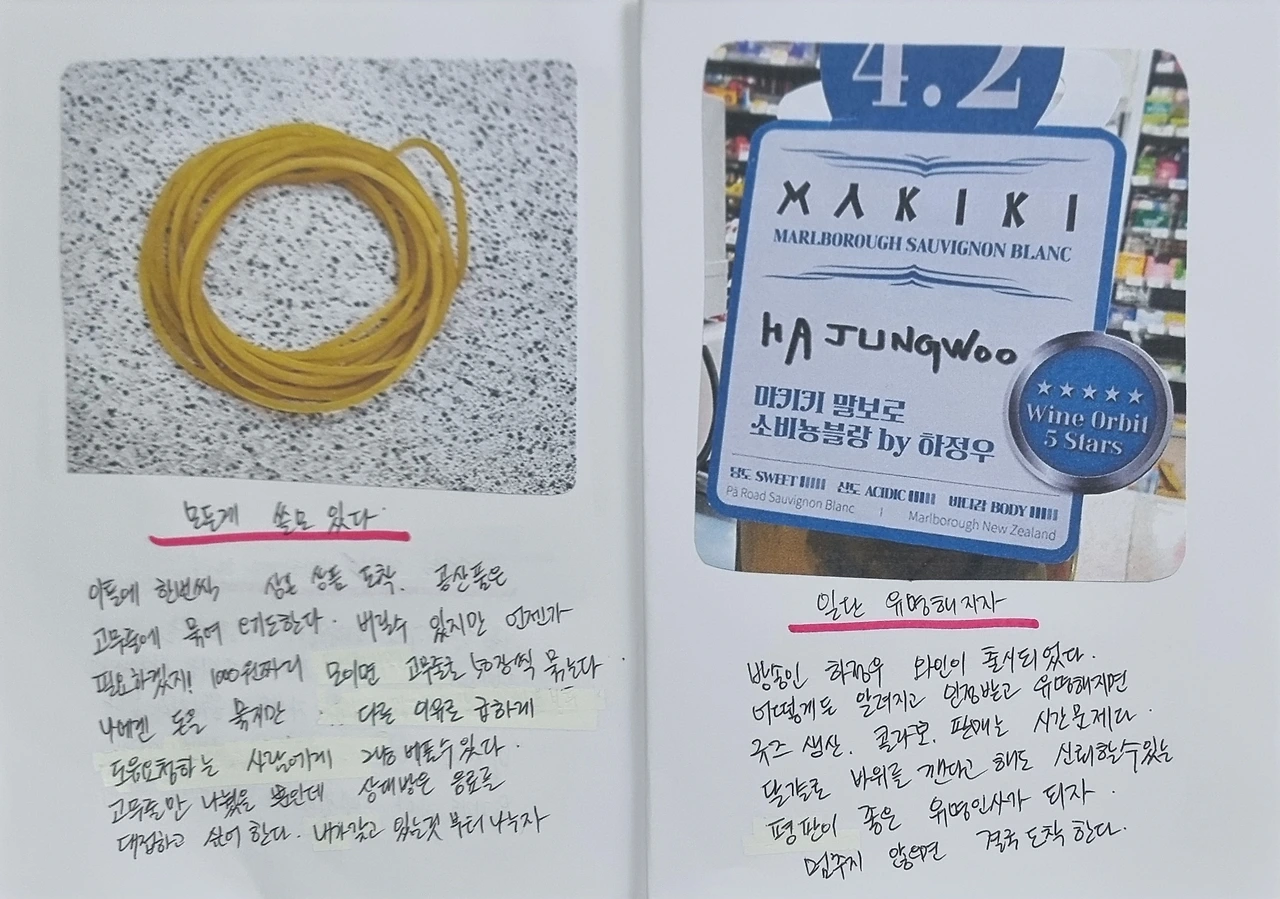 모두게 쓸모 있다.
이틀에 한번씩 상온 상품 도착. 공산품은
고무줄에 묶여 오기도한다. 버릴수 있지만 언젠가
필요하겠지! 1000원짜리 모이면 고무줄로 50장씩 묶는다.
나에겐 돈을 묶지만 다른 이유로 급하게
도움요청하는 사람에게 그냥 베풀수있다.
고무줄만 나눴을 뿐인데 상대방은 음료를
대접하고 싶어 한다. 내가갖고 있는것 부터 나누자
4.2
MAKIKI
MARLBOROUGH SAUVIGNON BLANC
HA JUNGWOO
마키키 말보로
소비뇽블랑 by 하정우
Wine Orbit
5 Stars
당도 SWEET 산도 ACIDIC 바디감 BODY
Pā Road Sauvignon Blanc | Marlborough New Zealand
일단 유명해지자
방송인 하정우 와인이 출시되었다.
어떻게든 알려지고 인정받고 유명해지면
굿즈 생산. 콜라보. 판매는 시간문제다.
달걀로 바위를 깬다고 해도 신뢰할수있는
평판이 좋은 유명인사가 되자.
멈추지 않으면 결국 도착한다.